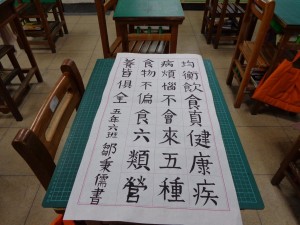 均衡飲食真健康疾
病煩惱不會來五種
食物不偏食六類營
養皆俱全 五年六班 鄒秉儒書